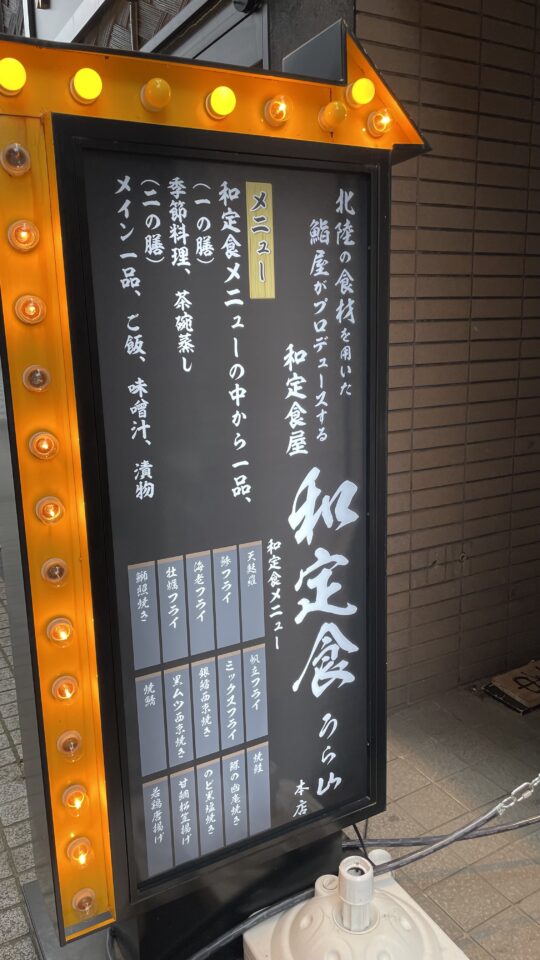 北陸の食材を用いた
鮨屋がプロデュースする
和定食屋
和定食 うら山 本店
メニュー
和定食メニューの中から一品、
(一の膳)
季節料理、茶碗蒸し
(二の膳)
メイン一品、ご飯、味噌汁、漬物
和定食メニュー
天麩羅
豚フライ
海老フライ
牡蠣フライ
鰤照焼き
帆立フライ
ミックスフライ
銀鱈西京焼き
黒ムツ西京焼き
焼鯖
焼鮭
鰤の幽庵焼き
のど黒塩焼き
甘鯛松笠揚げ
若鶏唐揚げ